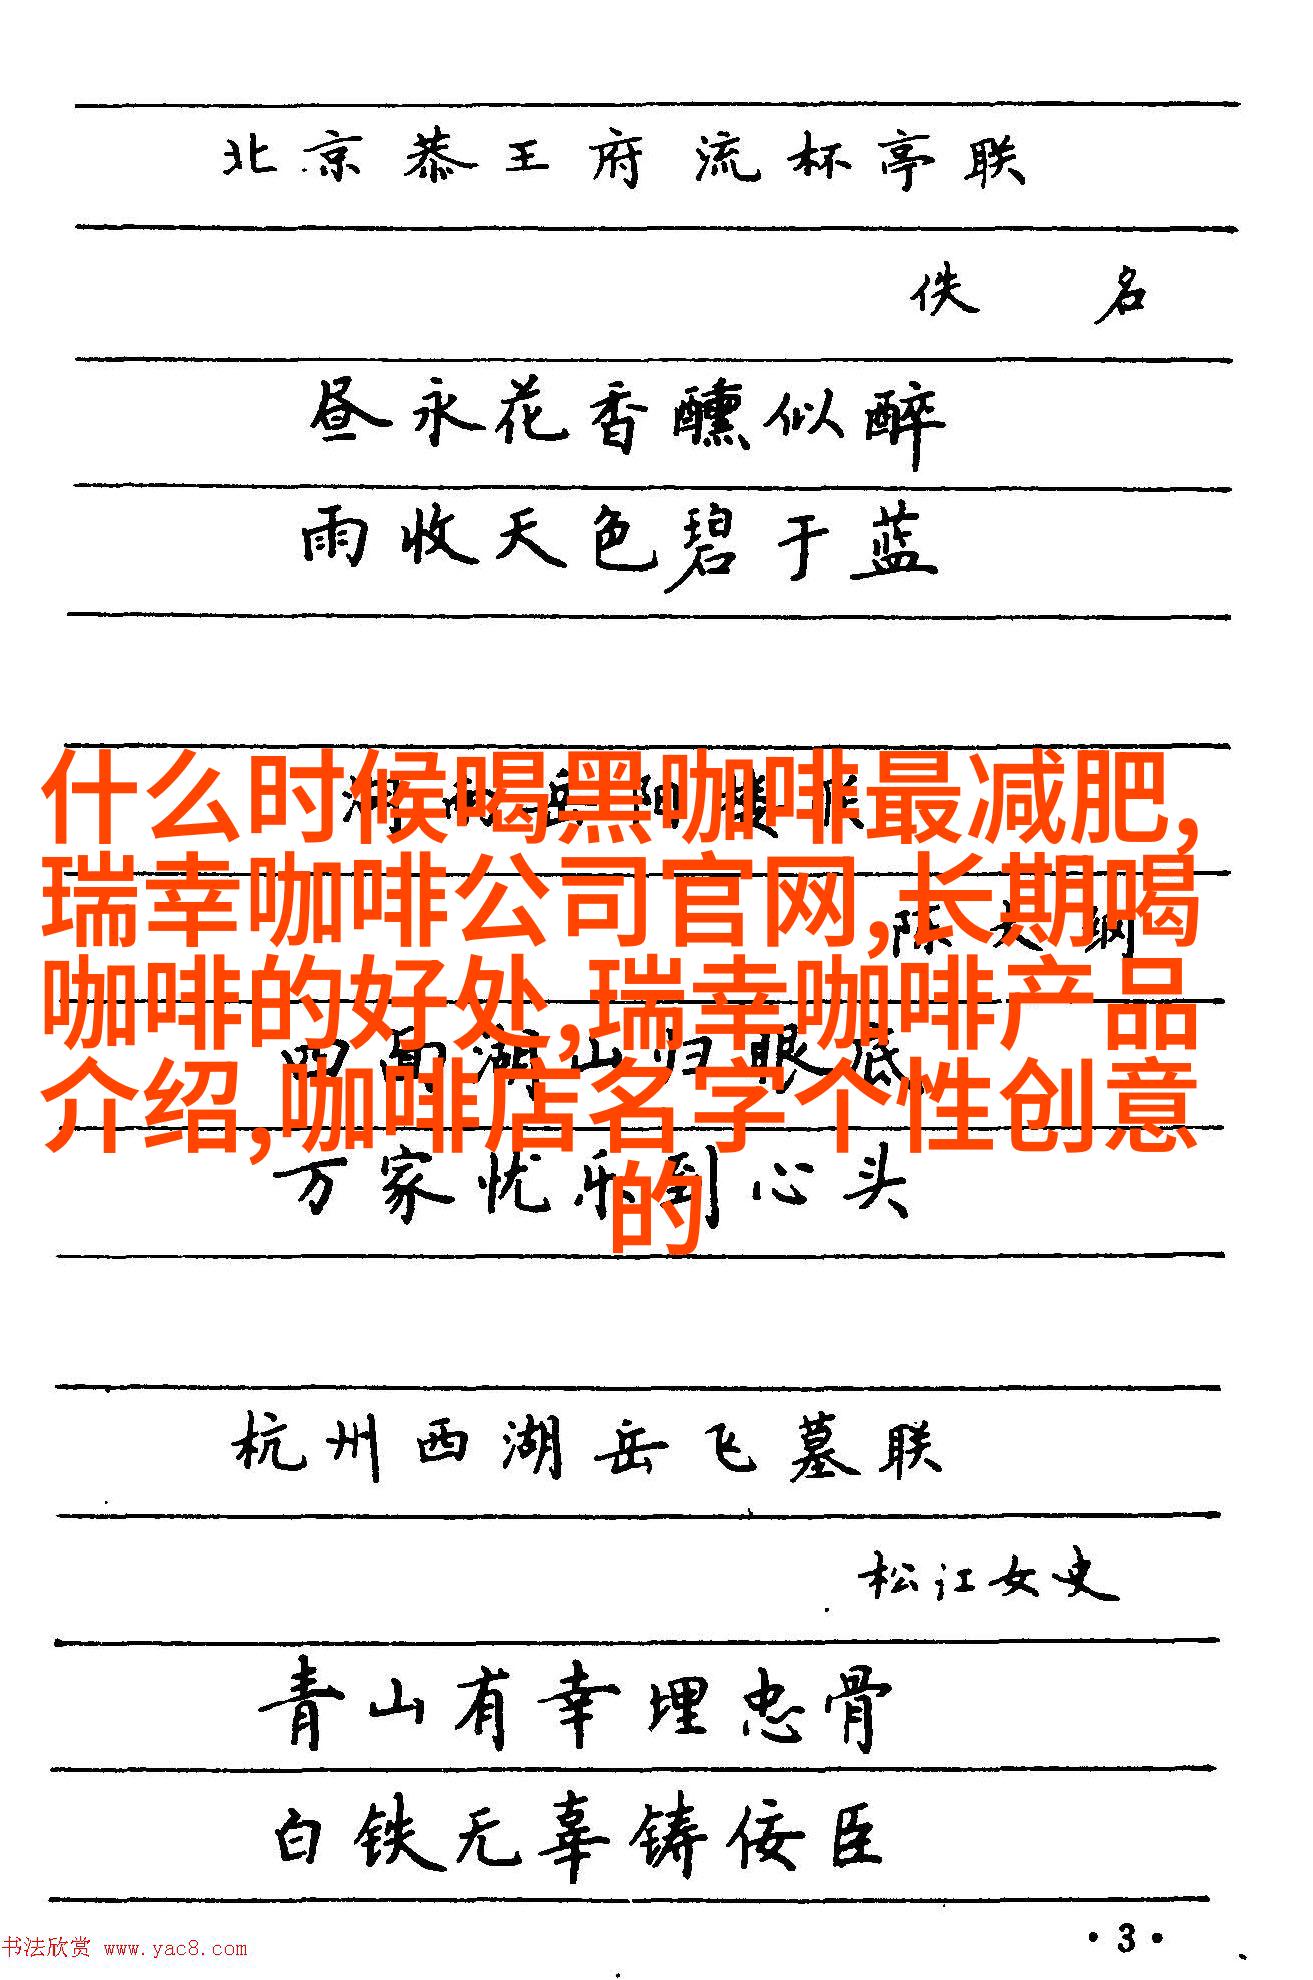 北京恭王府流杯亭联
佚名
昼永花香醺似醉
雨收天色碧于蓝
什么时候喝黑咖啡最减肥,
瑞幸咖啡公司官网,长期喝
咖啡的好处,瑞幸咖啡产品
介绍,咖啡店名字个性创意
的
湖南岳阳楼联
陈大纲
四面湖山归眼底
万家忧乐到心头
杭州西湖岳飞墓联
松江女史
青山有幸埋忠骨
白铁无辜铸佞臣
·3·
书法欣赏 www.yac8.com